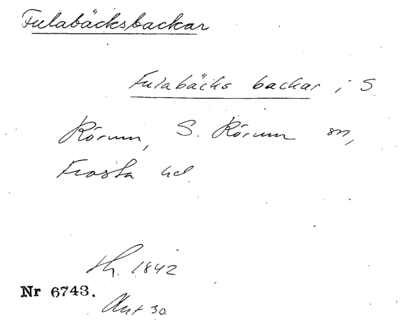 Fulabäcksbackar
Fulabäcks backar i S.
Rörum, S. Rörum sn,
Frosta hd
Lh. 1842
Nr 6743.
Akt 30